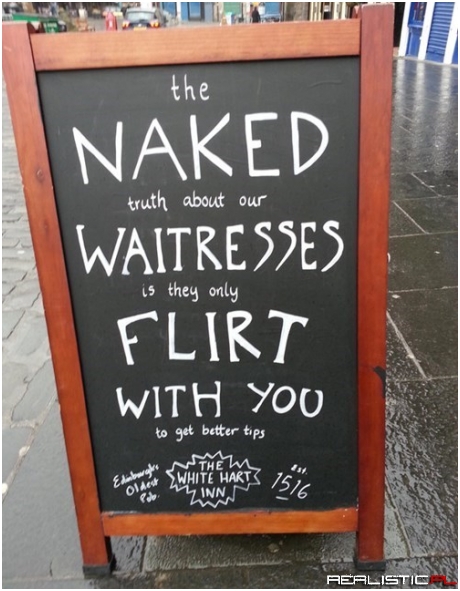 the
NAKED
truth about our
WAITRESSES
is they only
FLIRT
WITH YOU
to get better tips
Edinburgh's
Oldest
Pub.
THE
WHITE HART
INN
Est.
1516
REALISTIC.PL